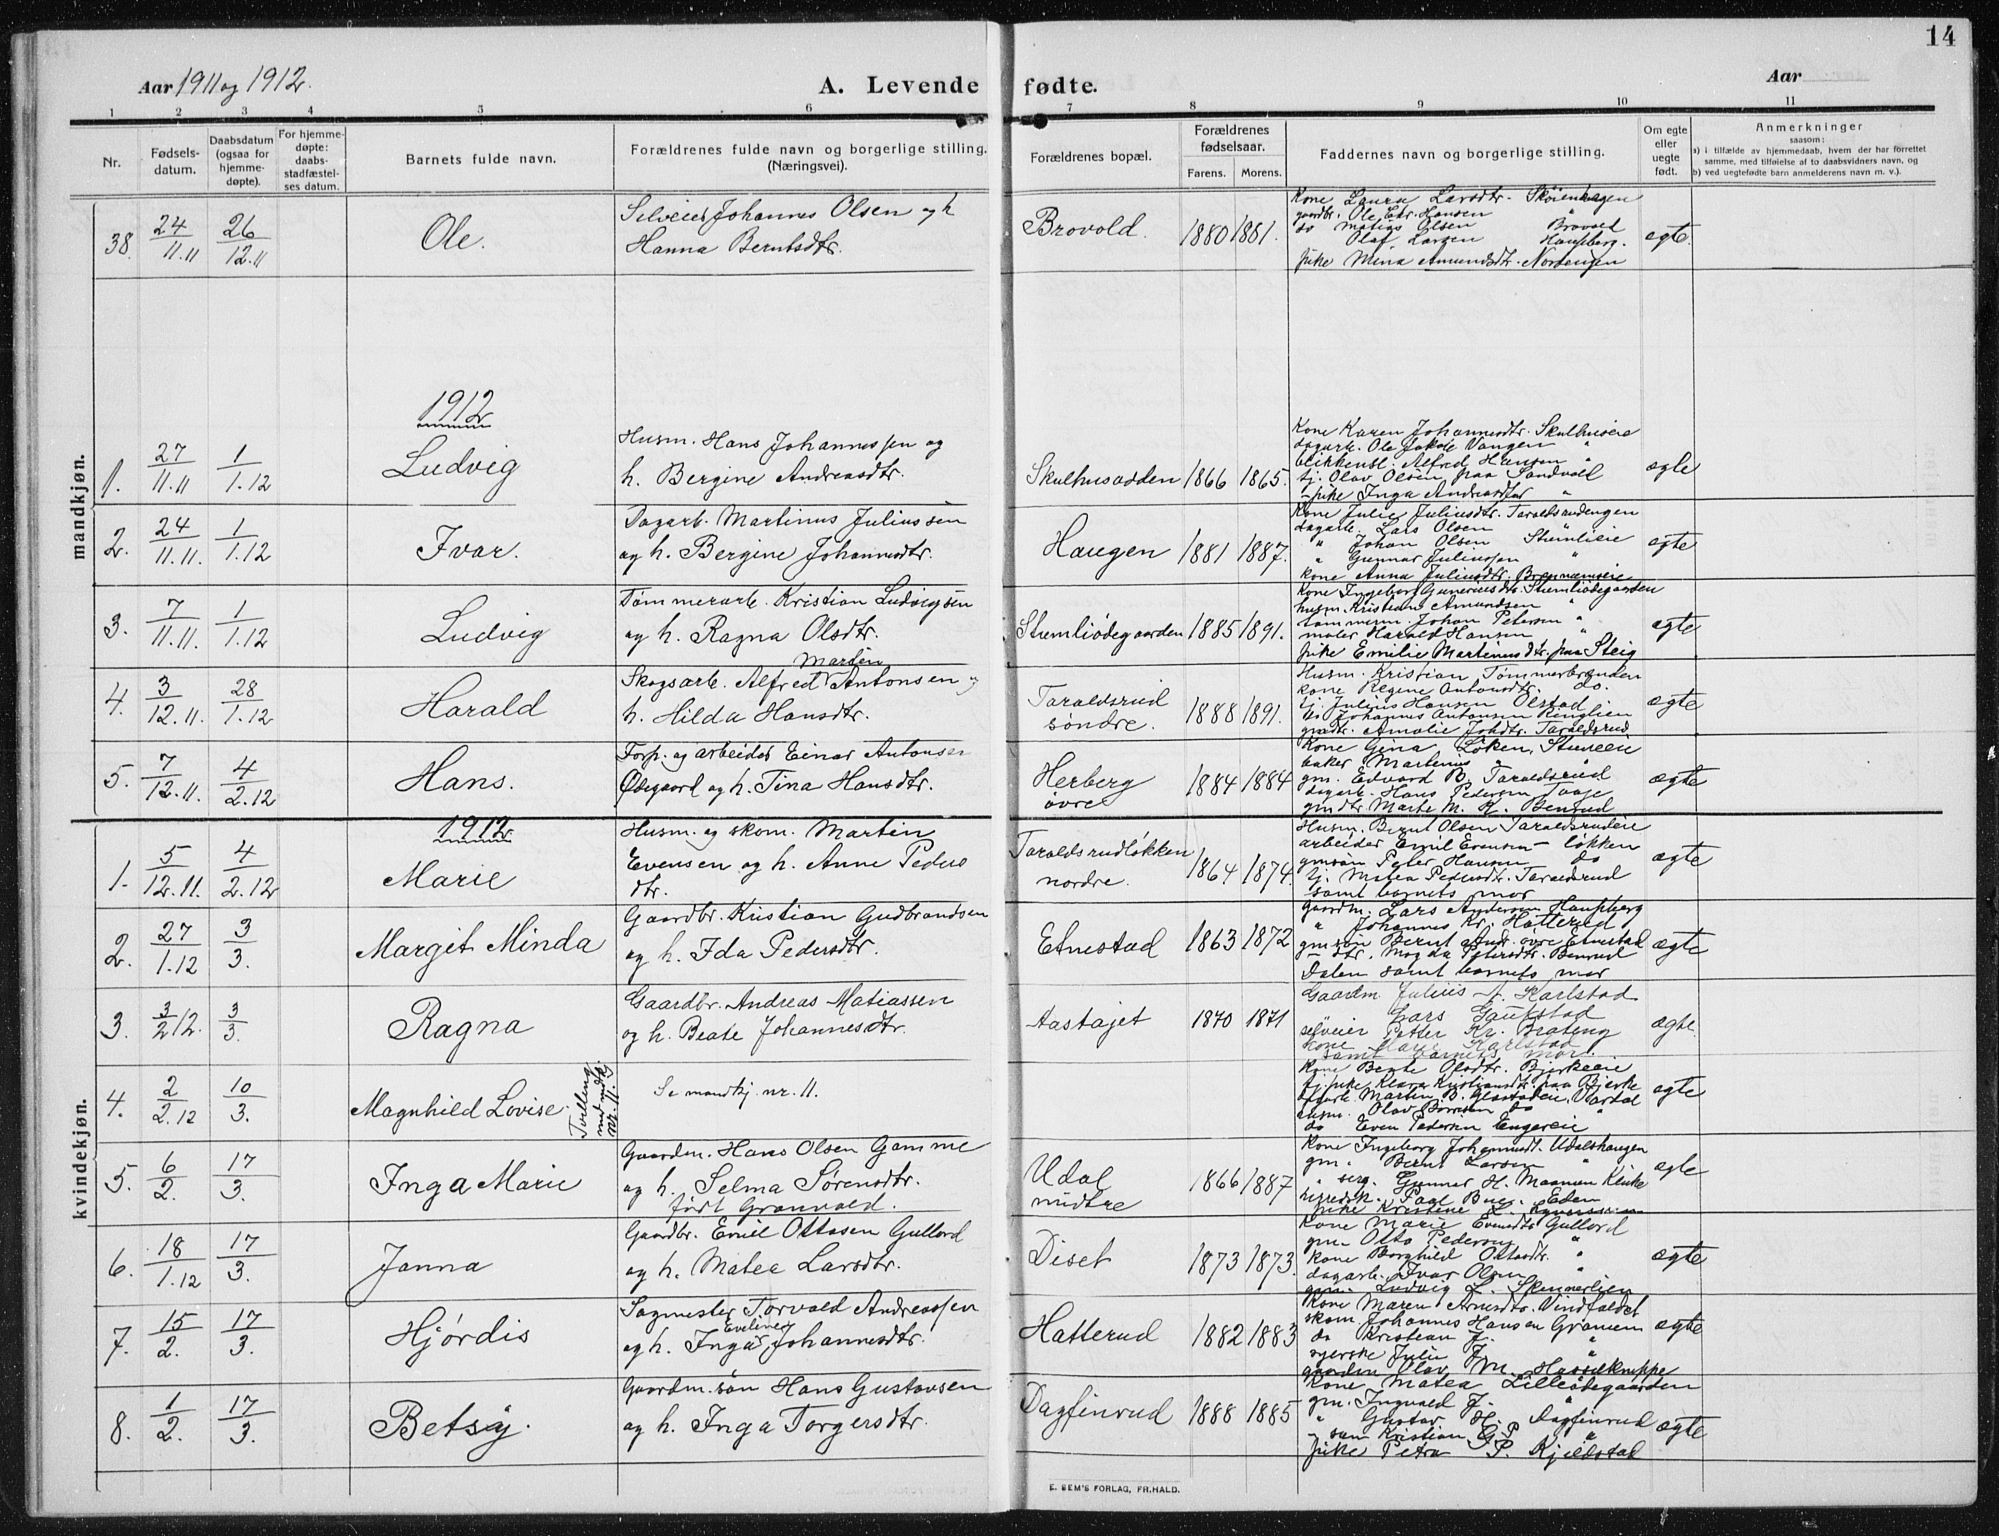 14
Aar 1911 og 1912.
A. Levende fødte.
Aar
1 2 3 4 5 6 7 8 9 10 11
Nr.
Fødsels-
datum.
Daabsdatum
(ogsaa for
hjemme-
døpte).
For hjemme-
døpte:
daabs-
stadfæstel-
ses datum.
Barnets fulde navn.
Forældrenes fulde navn og borgerlige stilling.
(Næringsvei).
Forældrenes bopæl.
Forældrenes
fødselsaar.
Farens. Morens.
Faddernes navn og borgerlige stilling.
Om egte
eller
uegte
født.
Anmerkninger
saasom:
a) i tilfælde av hjemmedaab, hvem der har forrettet
samme, med tilføielse af to daabsvidners navn, og
b) ved uegtefødte barn anmelderens navn m. v.).
mandkjøn.
38. 24/11.11 26/12.11 Ole.
Selveier Johannes Olsen og h
Hanna Berntsdtr.
Brovold. 1880 1881.
Kone Laura Larsdtr. Skøienhagen
gaardbr. Ole Chr. Hansen "
do Matias Olsen Brovold
Olaf Larsen Haugsberg.
pike Mina Amundsdtr. Nordengen
egte.
1912
1. 27/11.11 1/1.12 Ludvig
Husm. Hans Johannessen og
h. Bergine Andreasdtr.
Skulhusødden 1866 1865.
Kone Karen Johannesdtr. Skulhuseie
dagarb. Ole Jakobs Vangen "
blikkensl. Alfred Hansen "
tj. Olav Olsen paa Sandvold
- pike Inga Andreasdtr "
egte
2. 24/11.11. 1/1.12 Ivar.
Dagarb. Martinus Juliussen
og h. Bergine Johannesdtr.
Haugen 1881 1887.
Kone Julie Juliusdtr. Taraldsrudengen
dagarb. Lars Olsen
" Johan Olsen Stumlieie
" Gunnar Juliussen "
kone Anna Juliusdtr.
egte
3. 7/11.11. 1/1.12 Ludvig
Tømmerarb. Kristian Ludvigsen
og h. Ragna Olsdtr.
Stumliødegaarden 1885 1891.
Kone Ingeborg Gunerius dtr. Stumliødegaarden
husm. Kristian Amundsen "
tømmerm. Johan Petersen "
maler Harald Hansen "
pike Emilie Martinusdtr. paa Steig
egte
4. 3/12.11. 28/1.12 Harald
Skogsarb. Alfred Martin Antonsen og
h. Hilda Hansdtr.
Taraldsrud
søndre. 1888 1891.
Husm. Kristian Tømmerbraaden
kone Regine Antonsdtr. do.
tj. Julius Hansen Olstad
do Johannes Antonsen Ringlien
gmdtr. Amalie Johdtr. Taraldsrud.
egte
5. 7/12.11. 4/2.12 Hans.
Forp. og arbeider Einar Antonsen
Ødegaard og h. Tina Hansdtr.
Herberg
øvre 1884 1884
Kone Gina Løken, Stueeie
baker Martinius "
gm. Edvard B. Taraldsrud
dagarb. Hans Pedersen
gmdtr. Marte M. K. Benrud
ægte
kvindekjøn.
1912
1. 5/12.11. 4/2.12 Marie
Husm. og skom. Martin
Evensen og h. Anne Peders
dtr.
Taraldsrudløkken
nordre. 1864 1874.
Husm. Bernt Olsen Taraldsrudeie
arbeider Emil Evensen - løkken
gmsøn Peter Hansen do
tj. Matea Pedersdtr. Taraldsrud
samt barnets mor
ægte
2. 27/1.12 3/3. Margit Minda
Gaardbr. Kristian Gudbrandsen
og h. Ida Pedersdtr.
Etnestad 1863 1872
gaardm. Lars Andersen Haugsberg
" Johannes Kr. Hatterud
gmsøn Bernt Andr. øvre Etnestad
g- dtr. Magda Petersdtr. Benrud
Dalen samt barnets mor
ægte
3. 3/2 12. 3/3. Ragna
Gaardbr. Andreas Matiassen
og h. Beate Johannesdtr.
Aastajet 1870 1871
Gaardm. Julius A. Karlstad
Lars Gaukstad
selveier Petter Kr. Brateng
Kone Mari Karlstad
samt barnets mor.
ægte
4. 2/2.12 10/3. Magnhild Lovise.
Tvilling
med mdkj
nr. 11.
Se mandkj. nr. 11.
Kone Beate Olsdtr. Bjerkeeie
tj. pike Klara Kristiansdtr. paa Bjerke
Martin B. Glæstadeie, Vardal
husm. Olav
do Even Pedersen Engereie
ægte
5. 6/2. 17/3. Inga Marie
Gaardm. Hans Olsen Gamme
og h. Selma Sørensdtr.
født Granvold.
Udal
midtre 1866 1887
Kone Ingeborg Johannesdt. Udalshaugen
gm. Bernt Larsen "
" serg. Gunnar H. Maanum
Paal Bue. Eden
pike Kristine L.
egte
6. 18/1.12 17/3. Janna
Gaardbr. Emil Ottosen Gullord
og h. Matea Larsdtr.
Diset 1873 1873.
Kone Marie Evensdtr Gullord
gm. Otto Pedersen "
kone Borghild Ottosdtr. "
dagarb. Ivar Olsen
gm. Ludvig L. Skinnerlien
ægte
7. 15/2. 17/3. Hjørdis
Sagmester Torvald Andreassen
og h. Inga Eveline Johannesdtr.
Hatterud 1882 1883
Kone Maren Arnesdtr. Vindfaldet
skom. Johannes Hansen Granum
do Kristian J.
syerske Julie J. "
Olav M. Hasselknippe
ægte
8. 1/2. 17/3. Betsy.
Gaardm. søn Hans Gustavsen
og h. Inga Torgersdtr.
Dagfinrud 1888 1885
Kone Matea Lilleødegaarden
gm. Ingvald J. "
" Gustav H. Dagfinrud
- søn Kristian G. P. "
pike Petra P. Kjeldstad
ægte
E. SEM'S FORLAG, FR.HALD.